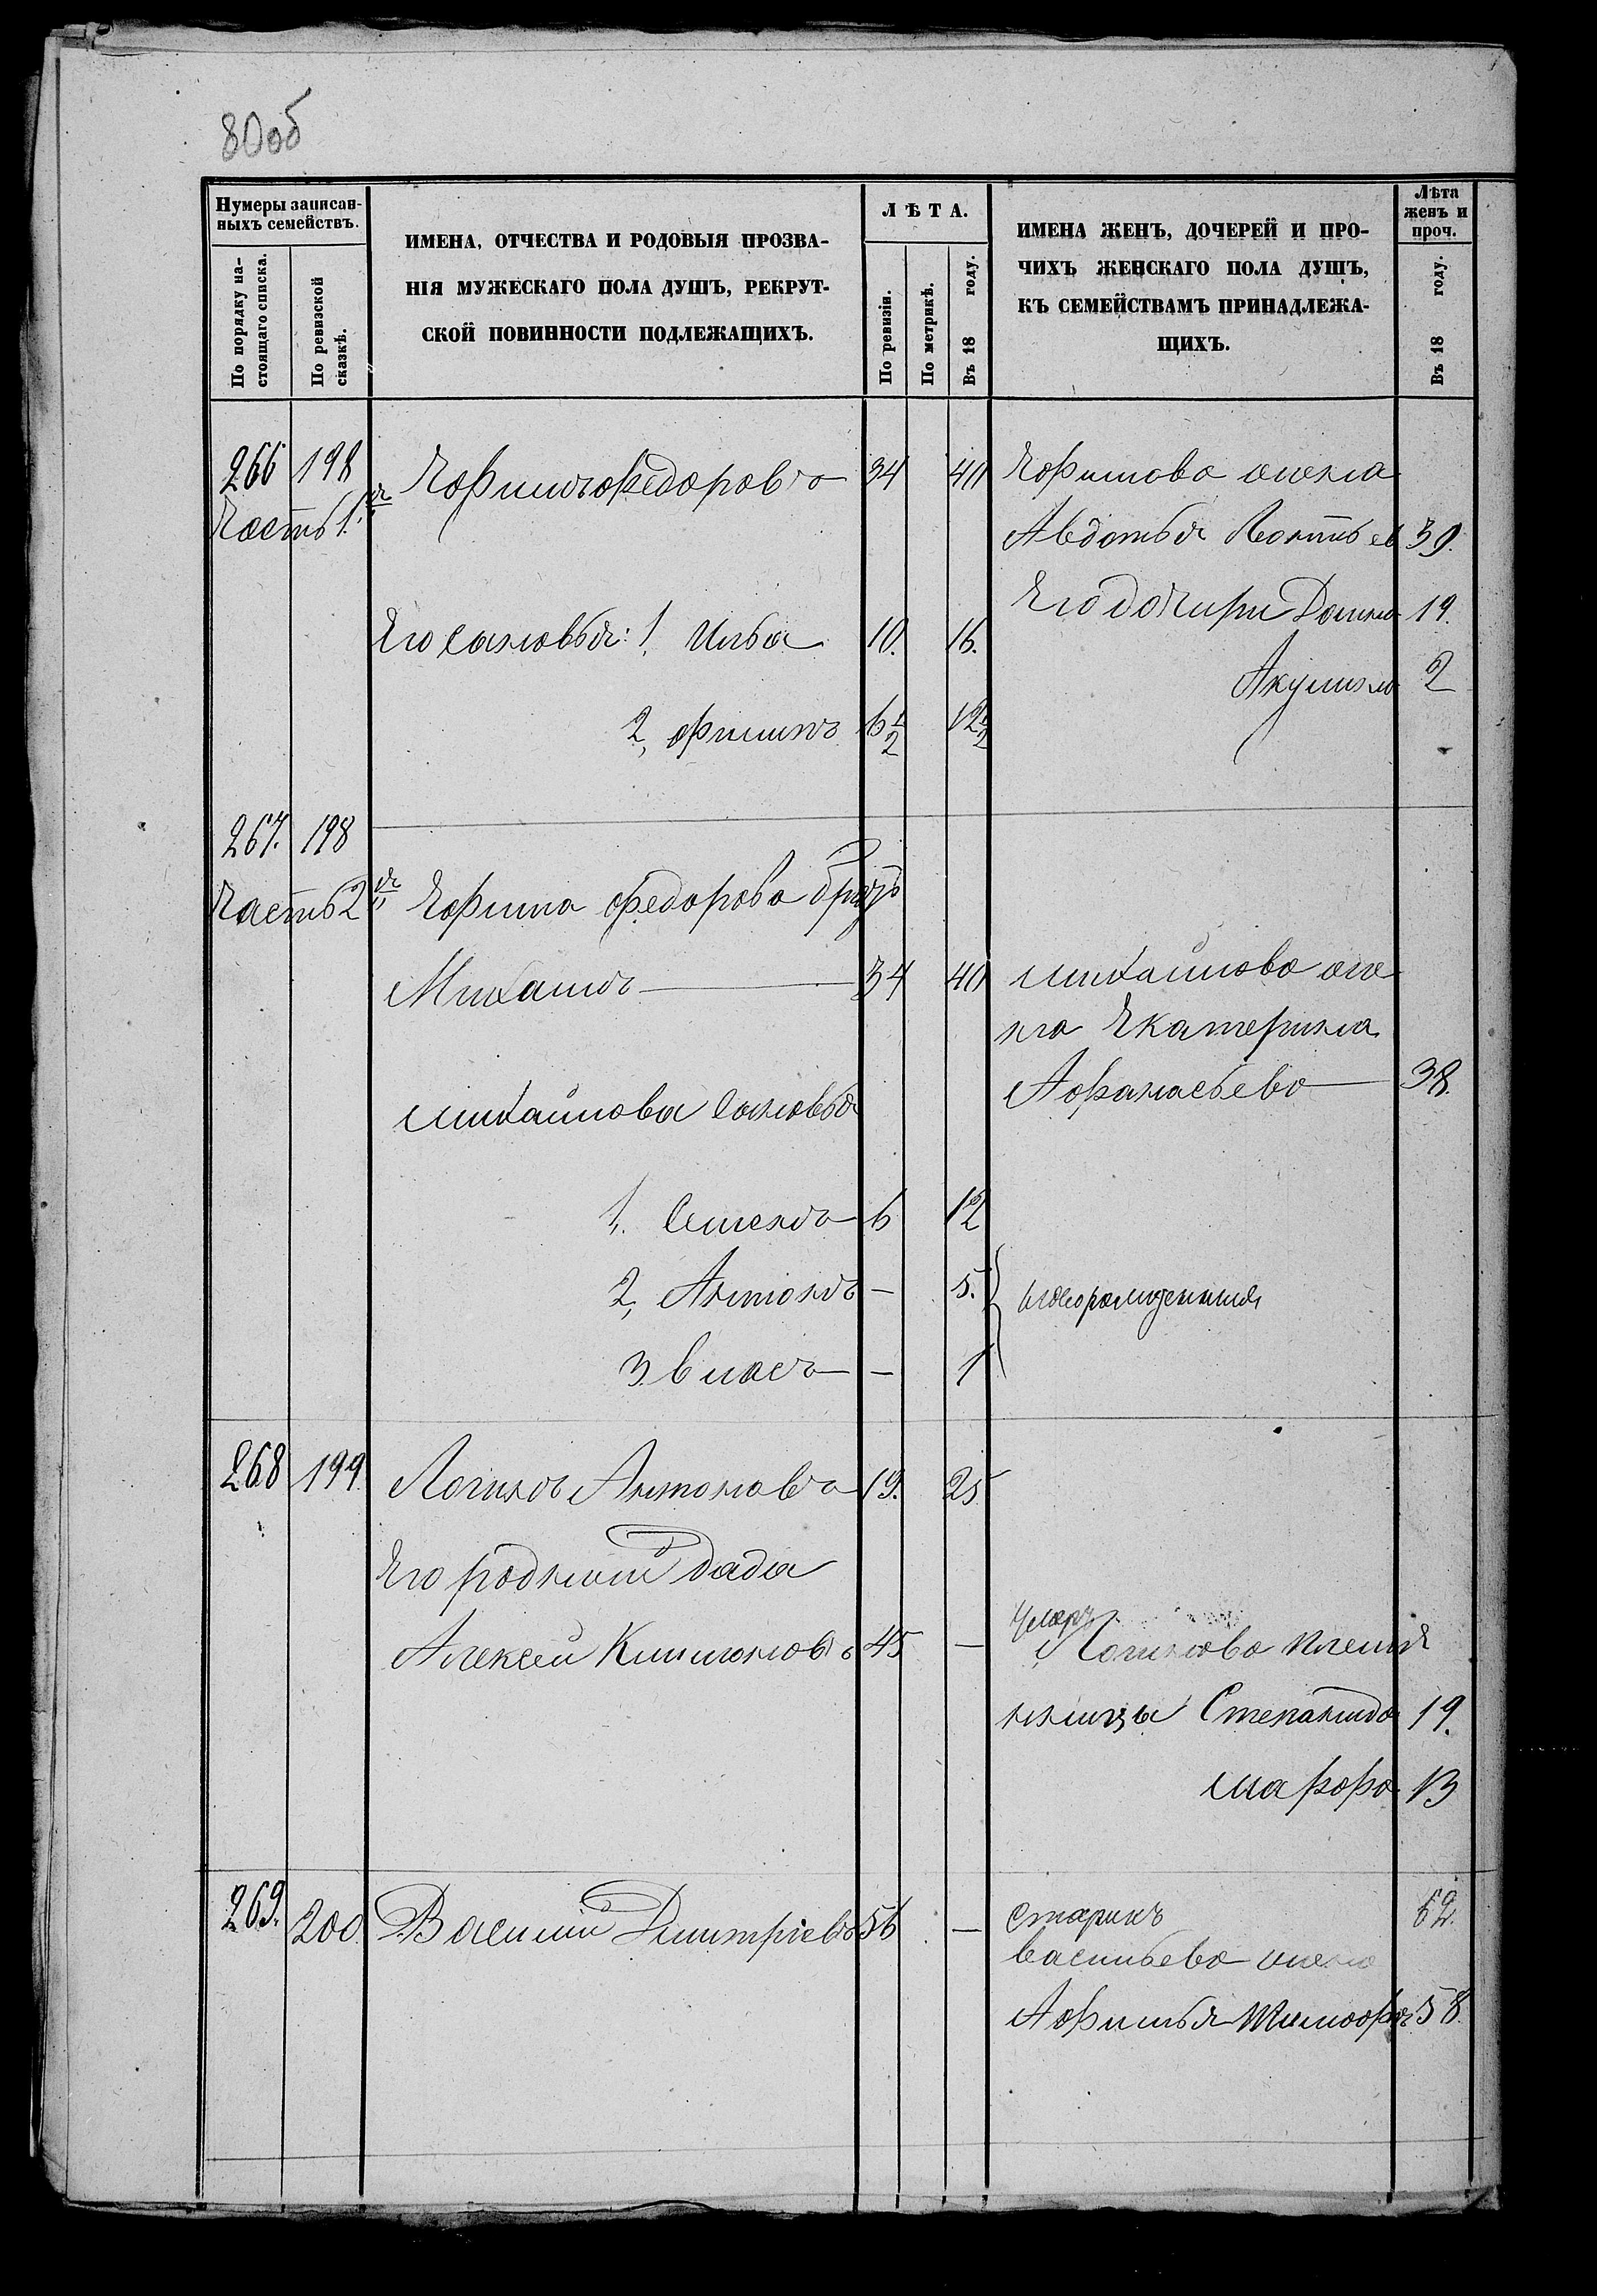 80об
Нумеры записан-
ныхъ семействъ.
По порядку на-
стоящаго списка.
По ревизской
сказкѣ.
ИМЕНА, ОТЧЕСТВА И РОДОВЫЯ ПРОЗВА-
НІЯ МУЖЕСКАГО ПОЛА ДУШЪ, РЕКРУТ-
СКОЙ ПОВИННОСТИ ПОДЛЕЖАЩИХЪ.
ЛѢТА.
По ревизіи.
По метрикѣ.
Въ 18 году.
ИМЕНА ЖЕНЪ, ДОЧЕРЕЙ И ПРО-
ЧИХЪ ЖЕНСКАГО ПОЛА ДУШЪ,
КЪ СЕМЕЙСТВАМЪ ПРИНАДЛЕЖА-
ЩИХЪ.
Лѣта
женъ и
проч.
Въ 18 году.
266 198 Ефимъ Федоровъ 34 40 Ефимова жена
Часть 1.я
Авдотья 39.
Его дочери Домна 19.
Его сыновья: 1, Илья 10. 16.
Акулина 2
2, Филипъ 6½ 12½
267. 198
Часть 2я Ефима Федорова братъ
Михаилъ 34 40 Михайлова же
на Екатерина
Афанасьева 38.
Михайловы сыновья
1, Семенъ 6 12
2, Антонъ — 5. новорожденныя
3. Власъ — 1
268 199. Логинъ Антоновъ 19. 25
Его родный дядя
умеръ
Алексей 45 — Логинова племя
нницы Степанида 19.
Марфа 13
269. 200. Василий Дмитріевъ 56 — старикъ 62.
Васильева жена
Афимья Тимоф. 58.